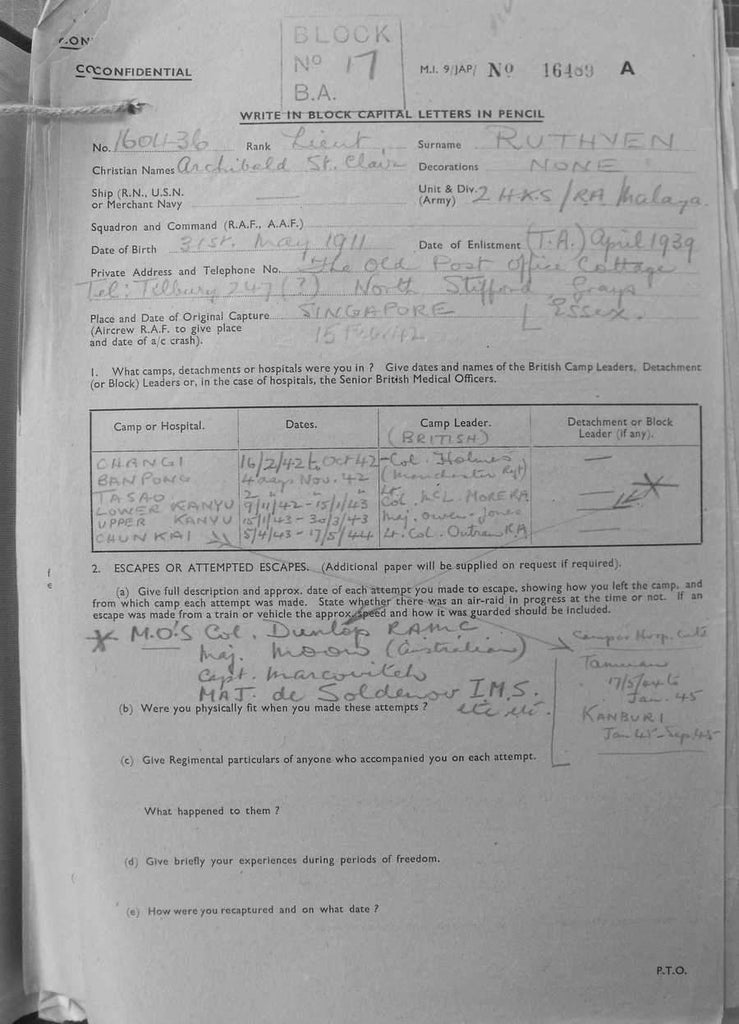 CON
CONFIDENTIAL
BLOCK
No 17
B.A.
M.I. 9/JAP/ No 16489 A
WRITE IN BLOCK CAPITAL LETTERS IN PENCIL
No. 160436 Rank Lieut. Surname RUTHVEN
Christian Names Archibald St. Clair Decorations NONE
Ship (R.N., U.S.N. or Merchant Navy —
Unit & Div. (Army) 2 HKS/RA Malaya.
Squadron and Command (R.A.F., A.A.F.)
Date of Birth 31st. May 1911 Date of Enlistment (T.A.) April 1939
Private Address and Telephone No. The Old Post Office Cottage
Tel: Tilbury 247(?) North Stifford Grays
Essex.
Place and Date of Original Capture SINGAPORE
(Aircrew R.A.F. to give place 15 Feb 42
and date of a/c crash).
1. What camps, detachments or hospitals were you in ? Give dates and names of the British Camp Leaders, Detachment
(or Block) Leaders or, in the case of hospitals, the Senior British Medical Officers.
Camp or Hospital. Dates. Camp Leader. (BRITISH) Detachment or Block Leader (if any).
CHANGI 16/2/42 to Oct 42 Col. Holmes —
BAN PONG 4 days Nov. '42 (Manchester Rgt)
TASAO 2 " " " Lt.
LOWER KANYU 9/11/42-15/1/43 Col. McL. MORE RA —
UPPER KANYU 15/1/43-30/3/43 Maj. Owen-Jones
CHUNKAI 5/4/43-17/5/44 Lt. Col. Outram RA —
2. ESCAPES OR ATTEMPTED ESCAPES. (Additional paper will be supplied on request if required).
(a) Give full description and approx. date of each attempt you made to escape, showing how you left the camp, and
from which camp each attempt was made. State whether there was an air-raid in progress at the time or not. If an
escape was made from a train or vehicle the approx. speed and how it was guarded should be included.
M.O'S Col. Dunlop RAMC
Maj. Moon (Australian)
Capt. Marcovitch
MAJ. de Soldenov I.M.S.
etc etc.
Tamuan
17/5/44 to
Jan. 45
KANBURI
Jan 45-Sep 45
(b) Were you physically fit when you made these attempts ?
(c) Give Regimental particulars of anyone who accompanied you on each attempt.
What happened to them ?
(d) Give briefly your experiences during periods of freedom.
(e) How were you recaptured and on what date ?
P.T.O.